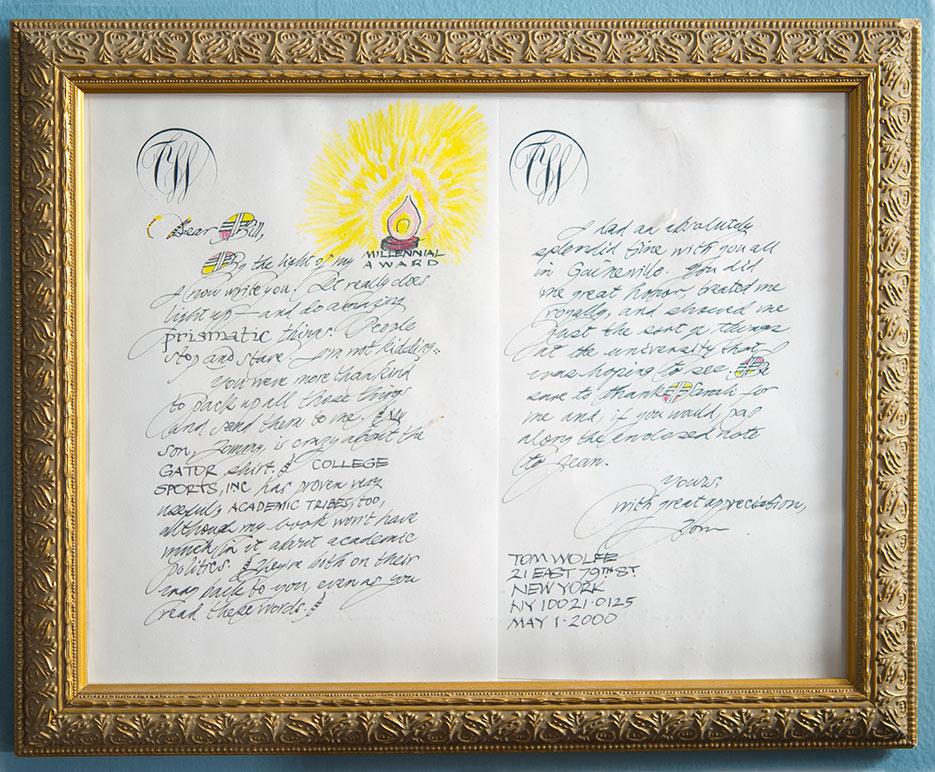 TW
Dear Bill,
MILLENNIAL
AWARD
By the light of my
I now write you! It really does
light up — and do amazing
prismatic things. People
stop and stare. I'm not kidding..
You were more than kind
to pack up all those things
and send them to me. My
son, Tommy, is crazy about the
GATOR shirt. COLLEGE
SPORTS, INC has proven very
useful, ACADEMIC TRIBES, too,
although my book won't have
much in it about academic
politics. They're both on their
way back to you, even as you
read these words.
TW
I had an absolutely
splendid time with you all
in Gainesville. You did
me great honor, treated me
royally, and showed me
just the sort of things
at the university that I
was hoping to see. Be
sure to thank Sarah for
me and, if you would, pass
along the enclosed note
to Jean.
Yours,
with great appreciation,
Tom
TOM WOLFE
21 EAST 79TH ST.
NEW YORK
NY 10021·0125
MAY 1·2000